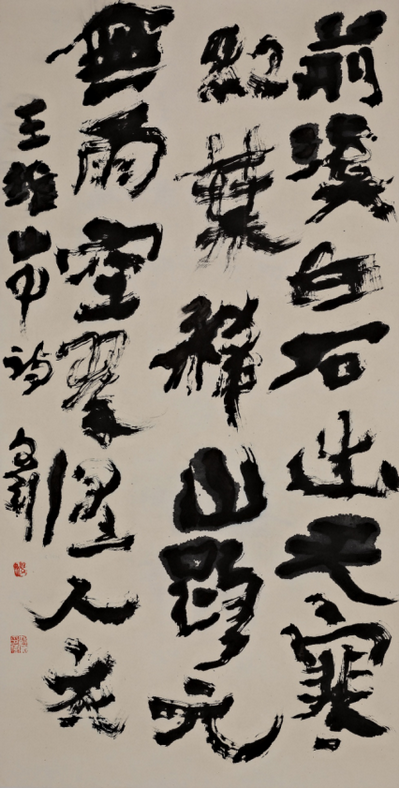 荊溪白石出天寒
紅葉稀山路元
無雨空翠濕人衣
王維山中詩